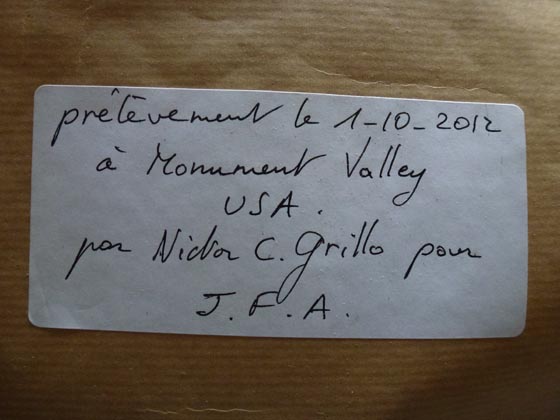 prélèvement le 1-10-2012
à Monument Valley
USA.
par C. Grillo pour
J.F.A.